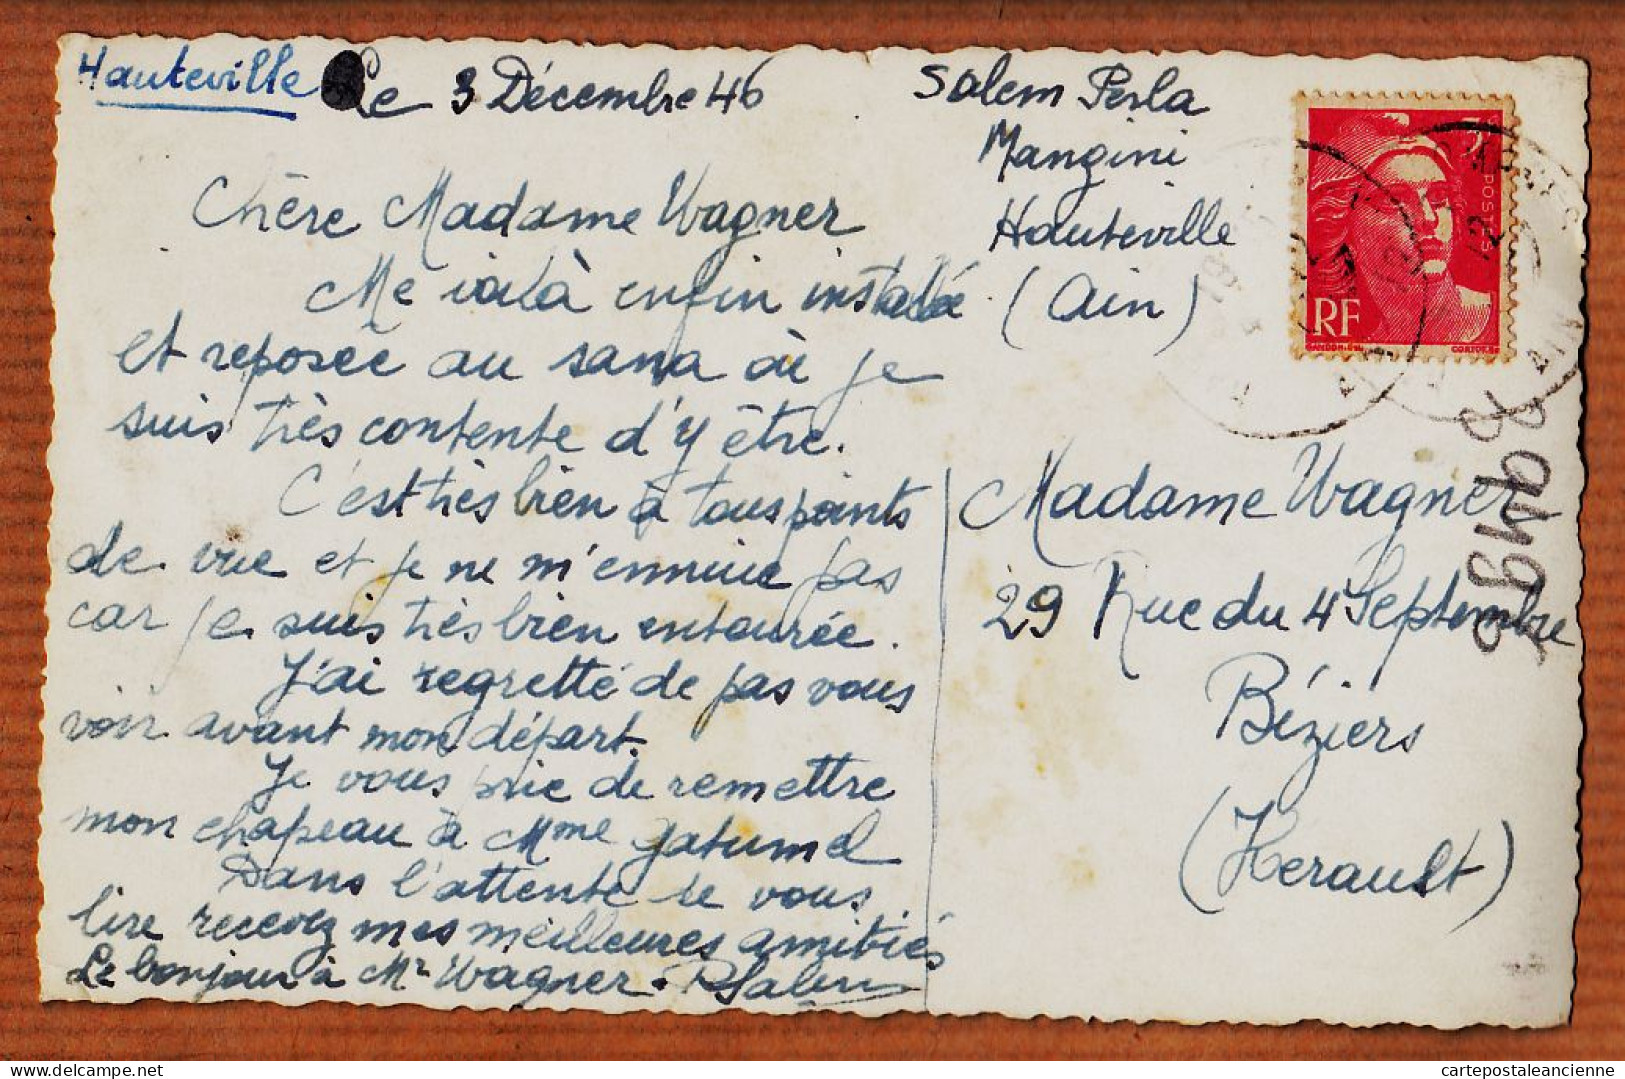 Hauteville Le 3 Décembre 46
Chère Madame Wagner
Me voilà enfin installée
et reposée au sana où je
suis très contente d'y être.
C'est très bien à tous points
de vue et je ne m'ennuie pas
car je suis très bien entourée.
J'ai regretté de pas vous
voir avant mon départ.
Je vous prie de remettre
mon chapeau à Mme Gatumel
Dans l'attente de vous
lire recevez mes meilleures amitiés
Le bonjour à Mr Wagner. PSalem
Salem Perla
Mangini
Hauteville
(Ain)
3F
POSTES
RF
GANDON
CORTOT
AIN
Madame Wagner
29 Rue du 4 Septembre
Béziers
(Herault)
cartepostaleancienne.com